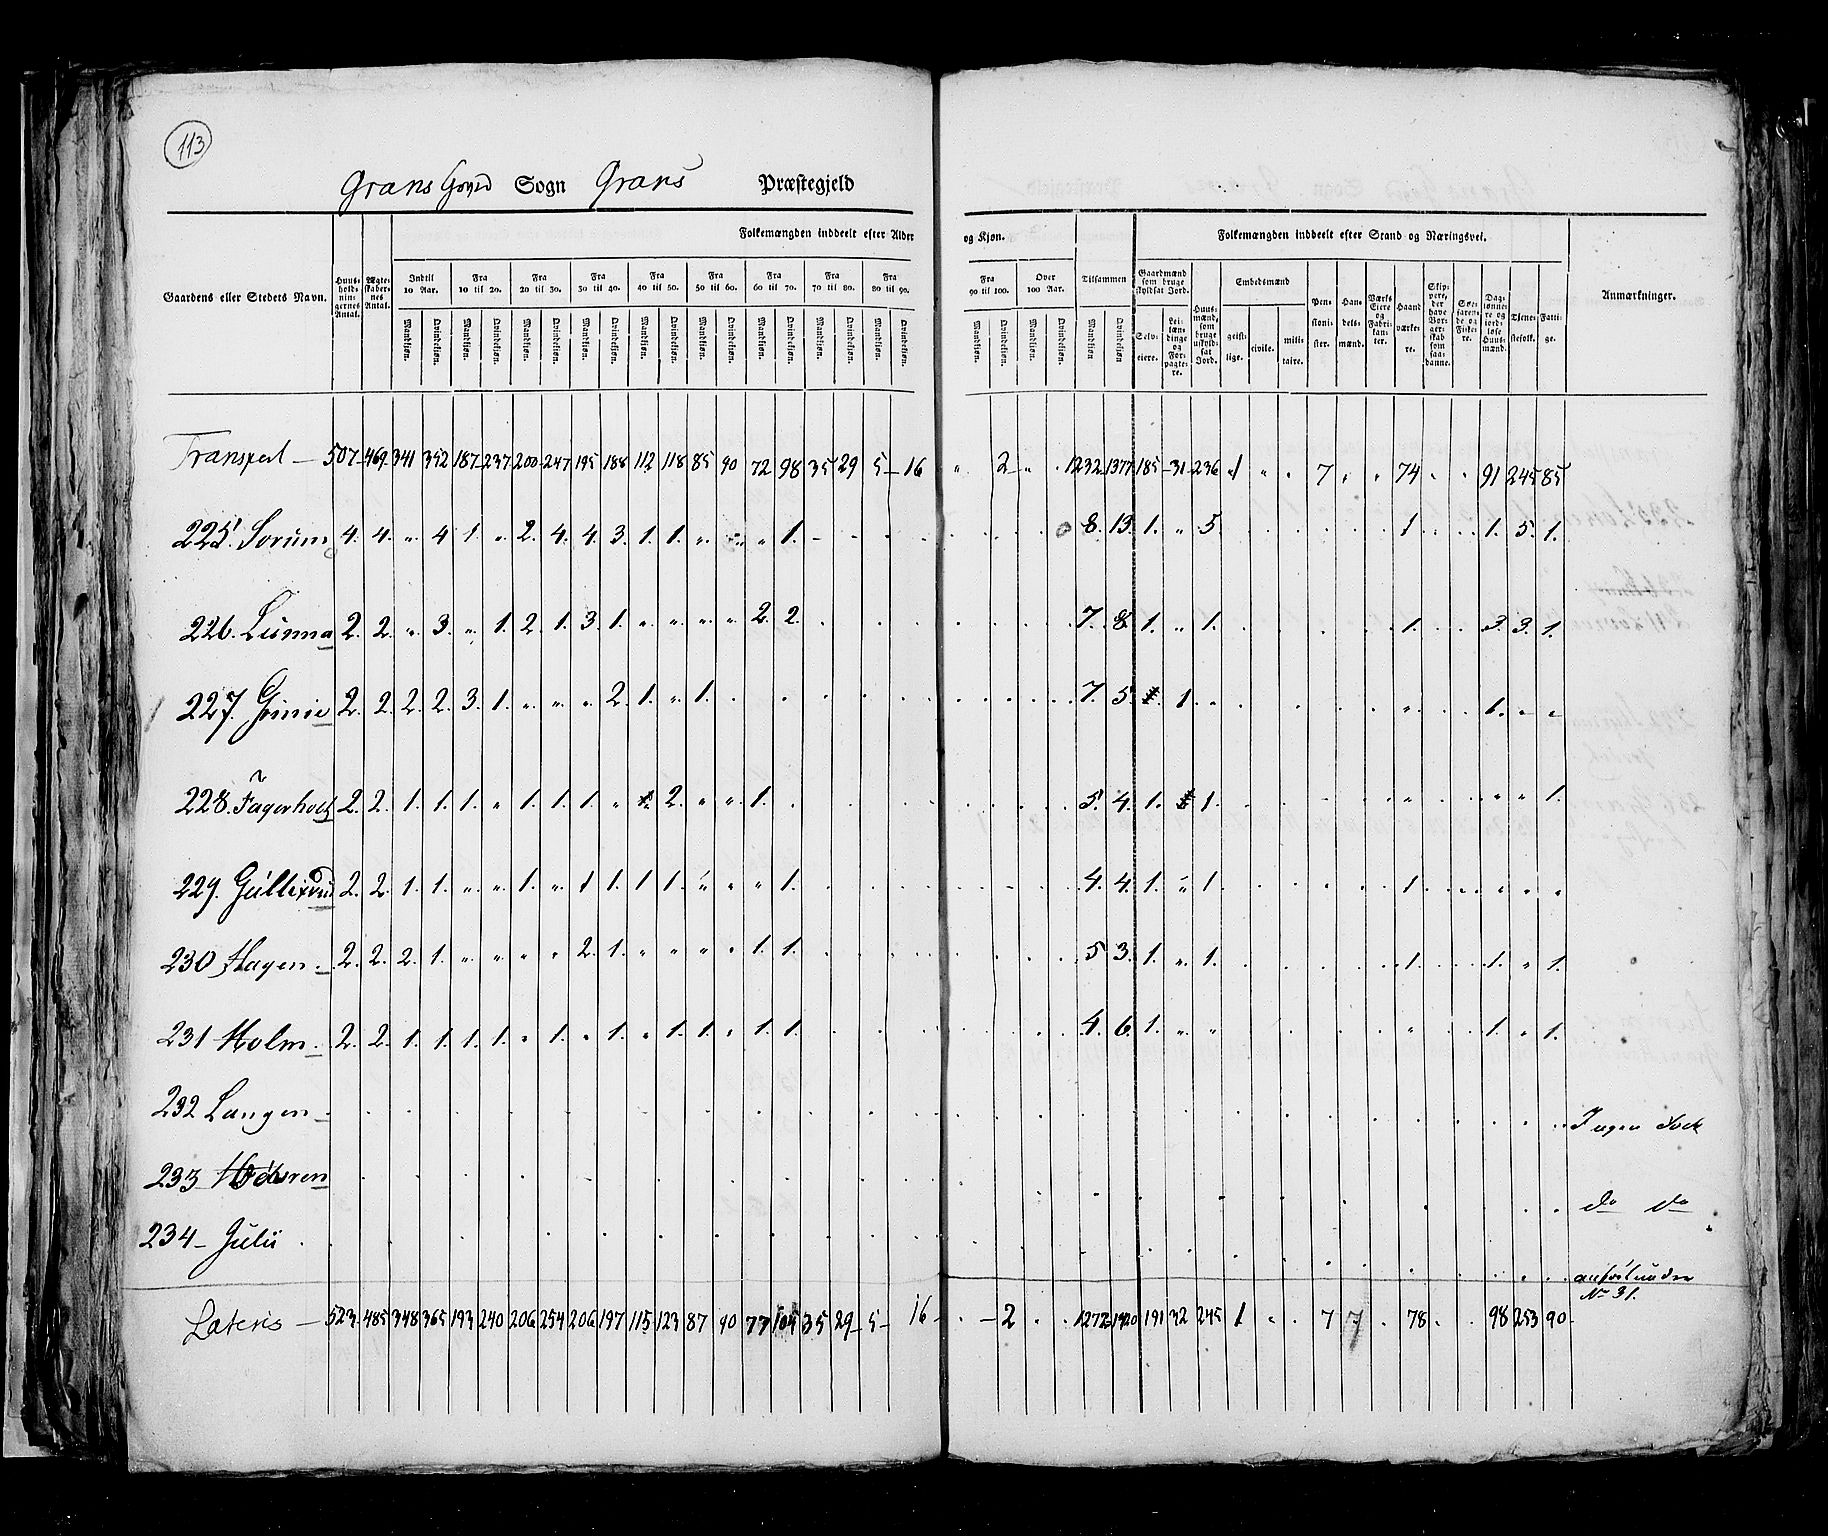 113
Grans Sogn Grans Præstegjeld
Gaardens eller Stedets Navn. Huusholdningernes Antal. Ægteskabernes Antal. Folkemængden inddeelt efter Alder og Kjøn. Tilsammen Folkemængden inddeelt efter Stand og Næringsvei. Anmærkninger.
Indtil 10 Aar. Fra 10 til 20. Fra 20 til 30. Fra 30 til 40. Fra 40 til 50. Fra 50 til 60. Fra 60 til 70. Fra 70 til 80. Fra 80 til 90. Fra 90 til 100. Over 100 Aar. Gaardmænd som bruge skyldsat Jord. Huusmænd, som bruge uskyldsat Jord. Embedsmænd Pensionister. Handelsmænd. Værks Eiere og Fabrikanter. Haandværkere. Skippere, der have Borgerskab som saadanne. Søefarende og Fiskere. Daglønnere og jordløse Huusmænd. Tjenestefolk. Fattige.
Mandkiøn. Qvindekiøn. Mandkiøn. Qvindekiøn. Mandkiøn. Qvindekiøn. Mandkiøn. Qvindekiøn. Mandkiøn. Qvindekiøn. Mandkiøn. Qvindekiøn. Mandkiøn. Qvindekiøn. Mandkiøn. Qvindekiøn. Mandkiøn. Qvindekiøn. Mandkiøn. Qvindekiøn. Mandkiøn. Qvindekiøn. Mandkiøn Qvindekiøn Selveiere. Leilændinge og Forpagtere. geistlige. civile. militaire.
Transport — 507 469 341 352 187 237 200 247 195 188 112 118 85 90 72 98 35 29 5 16 „ 2 „ . 1232 1377 185 31 236 1 „ . 7 . . 74 . . 91 245 85
225. Sorum 4. 4. „ 4 1. „ 2. 4. 4. 3. 1. 1. „ „ „ 1. 8. 13. 1. „ 5. 1. 1. 5. 1.
226. Lunna 2. 2. „ 3. „ 1. 2. 1. 3. 1. „ „ „ „ 2. 2. 7. 8. 1. „ 1. 1. 3. 3. 1.
227. Grinie 2. 2. 2. 2. 3. 1. „ „ „ 2. 1. „ 1. 7. 5. 1. „ „ 1. „ „
228. Fagerholt 2. 2. 1. 1. 1. „ 1. 1. 1. „ 2. „ „ 1. 5. 4. 1. 1. „ „ „ 1.
229. Gullixrud 2. 2. 1. 1. „ „ 1. „ 1 1. 1. 1. „ „ „ 1. 4. 4. 1. „ 1. 1. „ „ „
230 Hagen 2. 2. 2. 1. „ „ „ „ 2. 1. „ „ „ „ 1. 1. 5 3. 1. „ 1. 1. 1. „ 1.
231 Holm 2. 2. 1. 1. 1. 1. „ 1. „ 1. „ 1. 1. „ 1. 1. 4. 6. 1. „ „ „ 1. „ 1.
232 Langen Ingen Folk
233 do do
234 Gulii anført under No 31.
Lateris — 523 485 348 365 193 240 206 254 206 197 115 123 87 90 77 104 35 29 5 16 . 2 . . 1272 1420 191 32 245 1 „ . 7 7 . 78 . . 98 253 90